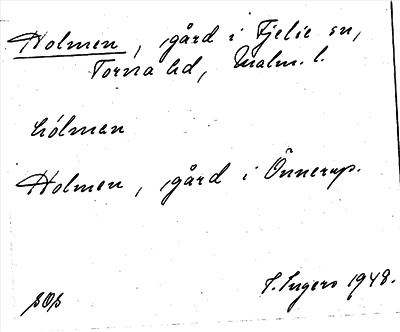 Holmen, gård i Fjelie sn,
Torna hd, Malm. l.
hólmən
Holmen, gård i Önnerup.
I. Ingers 1948.